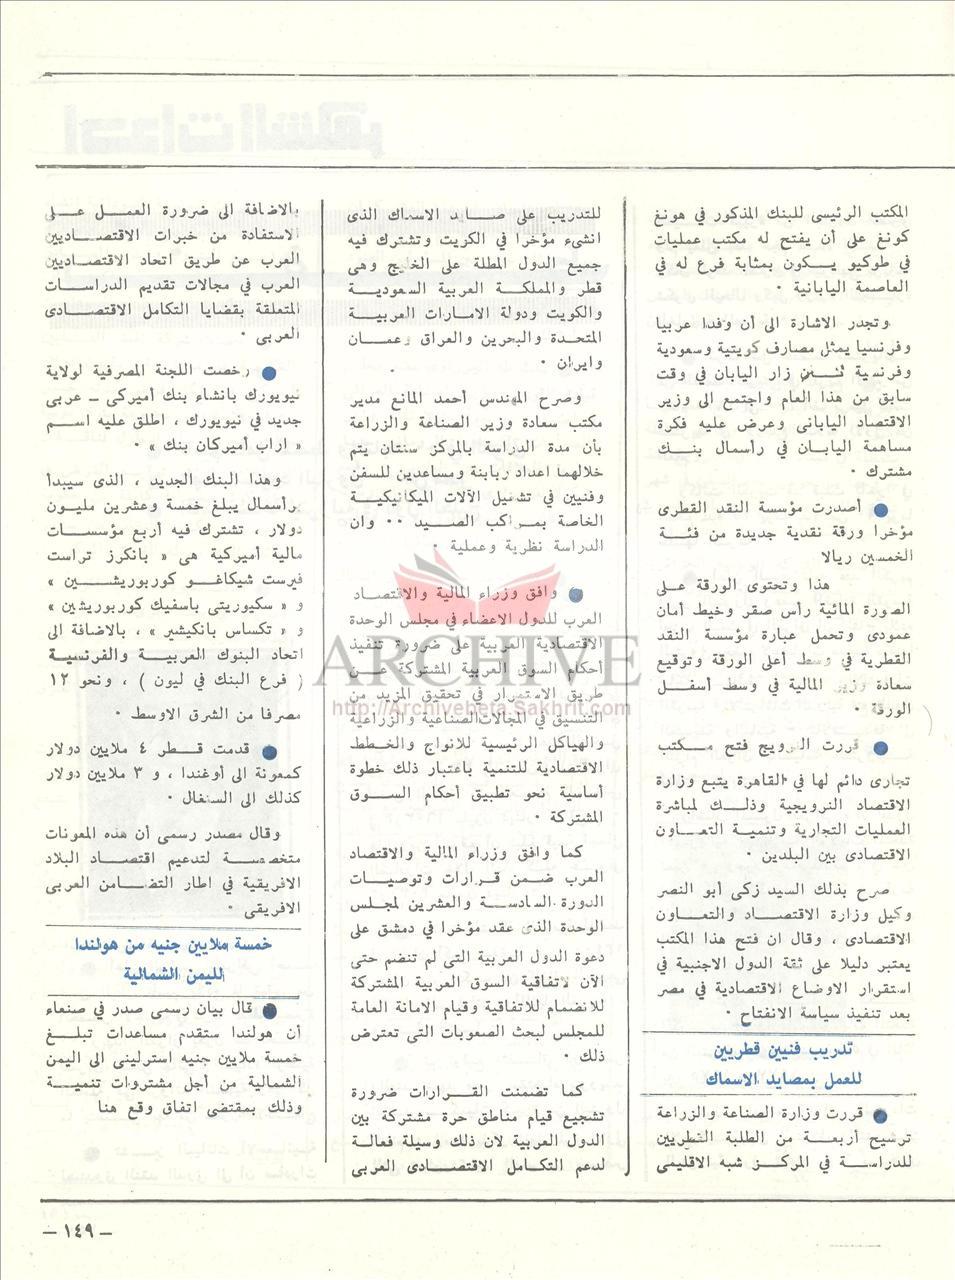 المكتب الرئيسى للبنك المذكور في هونغ
كونغ على أن يفتح له مكتب عمليات
في طوكيو يكون بمثابة فرع له في
العاصمة اليابانية ·
وتجدر الاشارة الى أن وفدا عربيا
وفرنسيا يمثل مصارف كويتية وسعودية
وفرنسية زار اليابان في وقت
سابق من هذا العام واجتمع الى وزير
الاقتصاد اليابانى وعرض عليه فكرة
مساهمة اليابان في رأسمال بنك
مشترك ·
● أصدرت مؤسسة النقد القطرى
مؤخرا ورقة نقدية جديدة من فئة
الخمسين ريالا
هذا وتحتوى الورقة على
الصورة المائية رأس صقر وخيط أمان
عمودى وتحمل عبارة مؤسسة النقد
القطرية في وسط أعلى الورقة وتوقيع
سعادة وزير المالية في وسط أسفل
الورقة ·
● قررت النرويج فتح مكتب
تجارى دائم لها في القاهرة يتبع وزارة
الاقتصاد النرويجية وذلك لمباشرة
العمليات التجارية وتنمية التعاون
الاقتصادى بين البلدين ·
صرح بذلك السيد زكى أبو النصر
وكيل وزارة الاقتصاد والتعاون
الاقتصادى ، وقال ان فتح هذا المكتب
يعتبر دليلا على ثقة الدول الاجنبية في
استقرار الاوضاع الاقتصادية في مصر
بعد تنفيذ سياسة الانفتاح ·
تدريب فنيين قطريين
للعمل بمصايد الاسماك
● قررت وزارة الصناعة والزراعة
ترشيح أربعة من الطلبة القطريين
للدراسة في المركز شبه الاقليمى
للتدريب على صايد الاسماك الذى
انشىء مؤخرا في الكويت وتشترك فيه
جميع الدول المطلة على الخليج وهى
قطر والمملكة العربية السعودية
والكويت ودولة الامارات العربية
المتحدة والبحرين والعراق وعمان
وايران ·
وصرح المهندس أحمد المانع مدير
مكتب سعادة وزير الصناعة والزراعة
بأن مدة الدراسة بالمركز سنتان يتم
خلالهما اعداد ربابنة ومساعدين للسفن
وفنيين في تشغيل الآلات الميكانيكية
الخاصة بمراكب الصيد ·· وان
الدراسة نظرية وعملية ·
● وافق وزراء المالية والاقتصاد
العرب للدول الاعضاء في مجلس الوحدة
الاقتصادية العربية على ضرورة تنفيذ
أحكام السوق العربية المشتركة عن
طريق الاستمرار في تحقيق المزيد من
التنسيق في المجالات الصناعية والزراعية
والهياكل الرئيسية للانواج والخطط
الاقتصادية للتنمية باعتبار ذلك خطوة
أساسية نحو تطبيق أحكام السوق
المشتركة ·
كما وافق وزراء المالية والاقتصاد
العرب ضمن قرارات وتوصيات
الدورة السادسة والعشرين لمجلس
الوحدة الذى عقد مؤخرا في دمشق على
دعوة الدول العربية التى لم تنضم حتى
الآن لاتفاقية السوق العربية المشتركة
للانضمام للاتفاقية وقيام الامانة العامة
للمجلس لبحث الصعوبات التى تعترض
ذلك ·
كما تضمنت القرارات ضرورة
تشجيع قيام مناطق حرة مشتركة بين
الدول العربية لان ذلك وسيلة فعالة
لدعم التكامل الاقتصادى العربى
بالاضافة الى ضرورة العمل على
الاستفادة من خبرات الاقتصاديين
العرب عن طريق اتحاد الاقتصاديين
العرب في مجالات تقديم الدراسات
المتعلقة بقضايا التكامل الاقتصادى
العربى ·
● رخصت اللجنة المصرفية لولاية
نيويورك بانشاء بنك أميركى - عربى
جديد في نيويورك ، اطلق عليه اسم
« اراب أميركان بنك » ·
وهذا البنك الجديد ، الذى سيبدأ
برأسمال يبلغ خمسة وعشرين مليون
دولار ، تشترك فيه أربع مؤسسات
مالية أميركية هى « بانكرز تراست
فيرست شيكاغو كوربوريشين »
و « سكيوريتى باسفيك كوربوريشين »
و « تكساس بانكيشير » ، بالاضافة الى
اتحاد البنوك العربية والفرنسية
( فرع البنك في ليون ) ، ونحو ١٢
مصرفا من الشرق الاوسط ·
● قدمت قطر ٤ ملايين دولار
كمعونة الى أوغندا ، و ٣ ملايين دولار
كذلك الى السنغال ·
وقال مصدر رسمى أن هذه المعونات
متخصصة لتدعيم اقتصاد البلاد
الافريقية في اطار التضامن العربى
الافريقى ·
خمسة ملايين جنيه من هولندا
لليمن الشمالية
● قال بيان رسمى صدر في صنعاء
أن هولندا ستقدم مساعدات تبلغ
خمسة ملايين جنيه استرلينى الى اليمن
الشمالية من أجل مشتروات تنمية
وذلك بمقتضى اتفاق وقع هنا
ARCHIVE
http://Archivebeta.Sakhrit.com
— ١٤٩ —